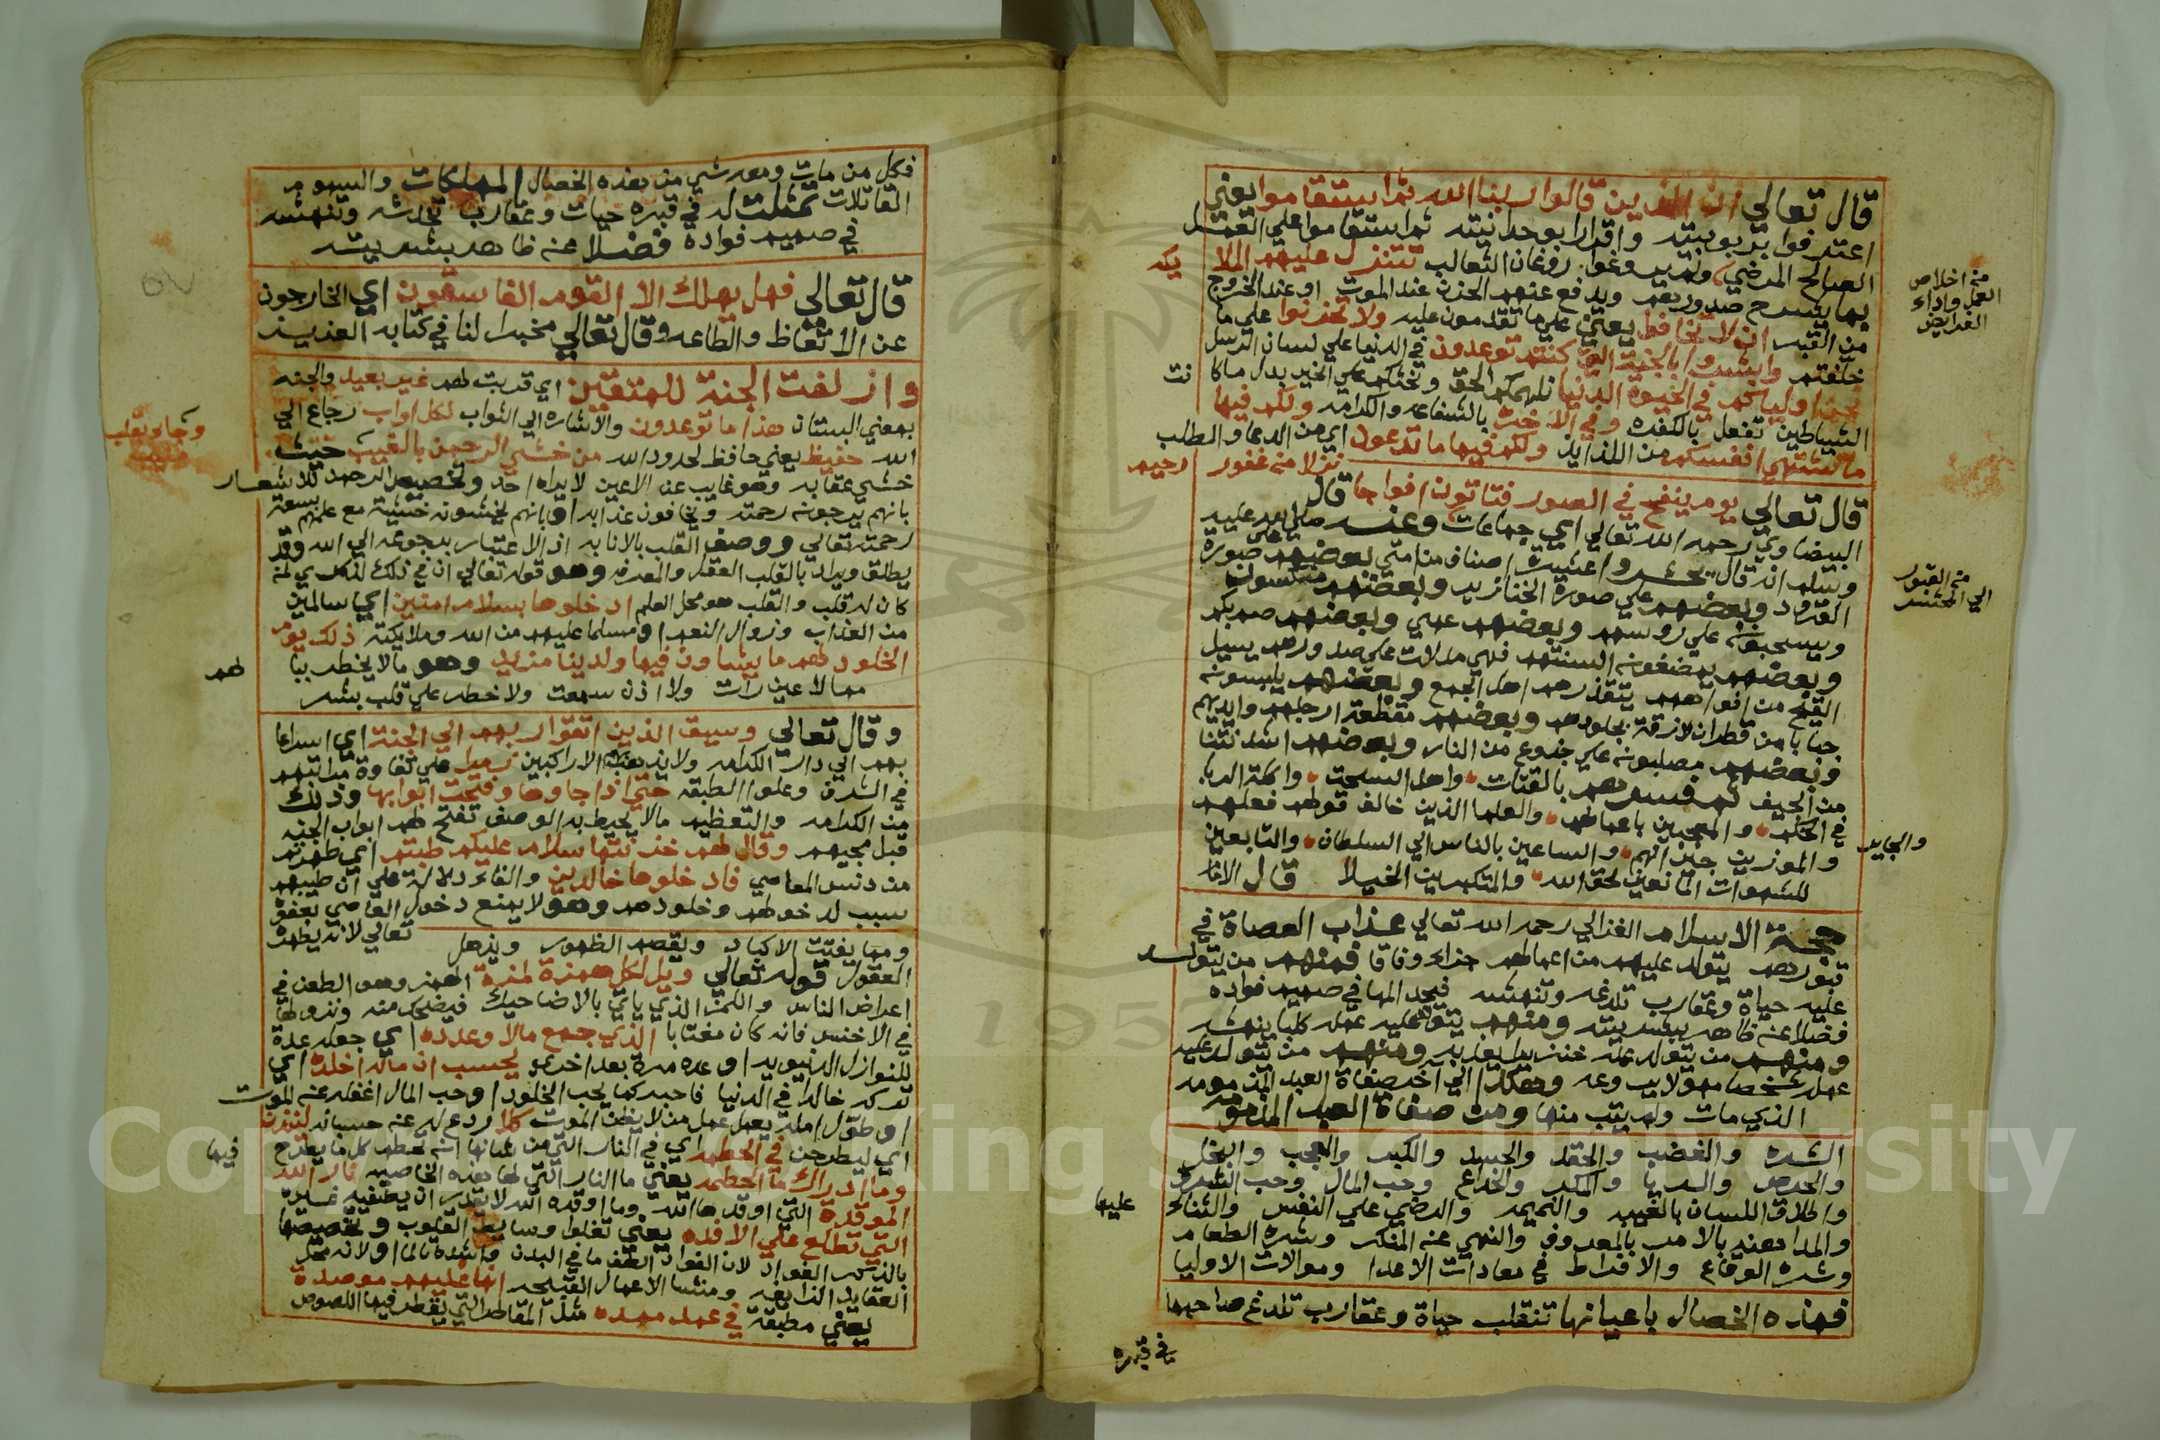 قال تعالي ان الذين قالوا ربنا الله ثم استقاموا يعني
اعترفوا بربوبيته واقرارا بوحدانيته ثم استقاموا علي العمل
الصالح المرضي ولم يروغوا روغان الثعالب تتنزل عليهم الملا
يكه
من اخلاص
العمل واداء
الفرايض
بها يشرح صدورهم ويدفع عنهم الحزن عند الموت او عند الخروج
من القبر ان لا تخافوا يعني علي ما تقدمون عليه ولا تحزنوا علي ما
خلفتم وابشروا بالجنة التي كنتم توعدون في الدنيا علي لسان الرسل
نحن اولياكم في الحيوة الدنيا نلهمكم الحق ونحثكم علي الخير بدل ما كا
نت
الشياطين تفعل بالكفره وفي الاخرة بالشفاعه والكرامه ولكم فيها
ما تشتهي انفسكم من اللذايذ ولكم فيها ما تدعون اي من الدعا والمطلب
نزلا من غفور رحيم
قال تعالي يوم ينفخ في الصور فتاتون افواجا قال
البيضاوي رحمه الله تعالي اي جماعات وعنه صلي الله عليه
وسلم انه قال يحشر اصناف من امتي بعضهم علي صورة
من القبور
الي المحشر
القرود وبعضهم علي صورة الخنازير وبعضهم منكسون
ويسحبونه علي روسهم وبعضهم عمي وبعضهم صم بكم
وبعضهم يمضغونه السنتهم فهي مدلات علي صدورهم يسيل
القيح من افواههم يتقذرهم اهل الجمع وبعضهم يلبسونه
جبابا من قطران لازقة بجلودهم وبعضهم مقطعة ارجلهم وايديهم
وبعضهم مصلبونه علي جذوع من النار وبعضهم اشد نتنا
من الجيف ثم فسرهم بالقتات واهل السحت واكلة الربا
والجاير
في الحكم والمعجبين باعمالهم والعلما الذين خالف قولهم فعلهم
والموزين جيرانهم والساعين بالناس الي السلطان والتابعين
للشهوات المانعين لحق الله والمتكبرين الخيلا قال الامام
حجة الاسلام الغزالي رحمه الله تعالي عذاب العصاة في
قبورهم يتولد عليهم من اعمالهم جزاء وفاقا فمنهم من يتولد
عليه حياة وعقارب تلدغه وتنهشه فيجد المها في صميم فواده
فضلا عنه ظاهر ببشريته ومنهم يتولد عليه عمله كلبا ينهشه
ومنهم من يتولد عمله خنزيرا يعذبه ومنهم من يتولد عليه
عمله شخصا مهولا يروعه وهكذا الي اخر صفاة العبد المذمومه
الذي مات ولم يتب منها ومن صفاة العبد المذمومة
الشره والغضب والحقد والحسد والكبر والعجب والبخل
والحرص والريا والمكر والخداع وحب المال وحب الشرف
واطلاق اللسان بالغيبه والنميمه والرضي علي النفس والثناء
عليها
والمداهنه بالامر بالمعروف والنهي عنه المنكر وشره الطعام
وشره الوقاع والافراط في معادات الاعدا وموالات الاوليا
فهذه الخصال باعيانها تنقلب حياة وعقارب تلدغ صاحبها
في قبره
فكل من مات ومعه شي من هذه الخصال المهلكات والسموم
القاتلات تمثلت له في قبره حيات وعقارب تخدشه وتنهشه
في صميم فواده فضلا عنه ظاهر بشريته
قال تعالي فهل يهلك الا القوم الفاسقون اي الخارجون
عن الاتعاظ والطاعه وقال تعالي مخبرا لنا في كتابه العزيز
وازلفت الجنة للمتقين اي قربت لهم غير بعيد والجنه
بمعني البستان هذا ما توعدون والاشاره الي الثواب لكل اواب رجاع الي
وجاء بقلب
منيب
الله حفيظ يعني حافظ لحدود الله من خشي الرحمن بالغيب حيث
خشي عقابه وهو غايب عن الاعين لا يراه احد وتخصيص الرحمن للاشعار
بانهم يرجونه رحمته ويخافون عذابه او بانهم يخشونه خشية مع علمهم بسعة
رحمته تعالي ووصف القلب بالانابه اذ الاعتبار برجوعه الي الله وقد
يطلق ويراد بالقلب العقل والمعرفه وهو قوله تعالي ان في ذلك لذكري لمن
كان له قلب والقلب هو محل العلم ادخلوها بسلام امنين اي سالمين
من العذاب وزوال النعم او مسلما عليهم من الله وملايكته ذلك يوم
الخلود لهم ما يشاون فيها ولدينا مزيد وهو مالا يخطر ببا
لهم
مما لا عين رات ولا اذن سمعت ولا خطر علي قلب بشر
وقال تعالي وسيق الذين اتقوا ربهم الي الجنة اي اسراعا
بهم الي دار الكرامه ولا يذهب الا راكبين زمرا علي تفاوة مراتبهم
في الشرف وعلو الطبقه حتي اذا جاوها وفتحت ابوابها وذلك
من الكرامه والتعظيم مالا يحيط به الوصف تفتح لهم ابواب الجنه
قبل مجيهم وقال لهم خزنتها سلام عليكم طبتم اي طهرتم
من دنس المعاصي فادخلوها خالدين والفاء دلالة علي ان طيبهم
سبب لدخولهم وخلودهم وهو لا يمنع دخول العاصي بعفوه
تعالي لانه يطهره
ومما يفتت الاكباد ويقصم الظهور ويذهل
العقول قوله تعالي ويل لكل همزة لمزة الهمز وهو الطعن في
اعراض الناس واللمز الذي ياتي بالاضاحيك فيضحك منه ونزولها
في الاخنس فانه كان مغتابا الذي جمع مالا وعدده اي جعله عدة
للنوازل الدنيويه او عده مرة بعد اخري يحسب ان ماله اخلده اي
تركه خالدا في الدنيا فاحبه كما يحب الخلود او حب المال اغفله عنه الموت
او طول امله يعمل عمل من لا يظن الموت كلا ردع له عنه حسبانه لينبذن
اي ليطرحن في الحطمه اي في النار التي من شانها ان تحطم كل ما يطرح
فيها
وما ادراك ما الحطمه يعني ما النار التي لها هذه الخاصيه نار الله
الموقدة التي اوقدها الله وما اوقده الله لا يقدر ان يطفيه غيره
التي تطلع علي الافده يعني تعلوا وسايط القلوب وتخصيصها
بالذكر الفواد لان الفواد الطف ما في البدن واشده تالما او لانه محل
العقايد الزايغه ومنشا الاعمال القبيحه انها عليهم موصدة
يعني مطبقة في عمد ممدده مثل المقاطر التي يقطر فيها اللصوص
Copyright © King Saud University
1957